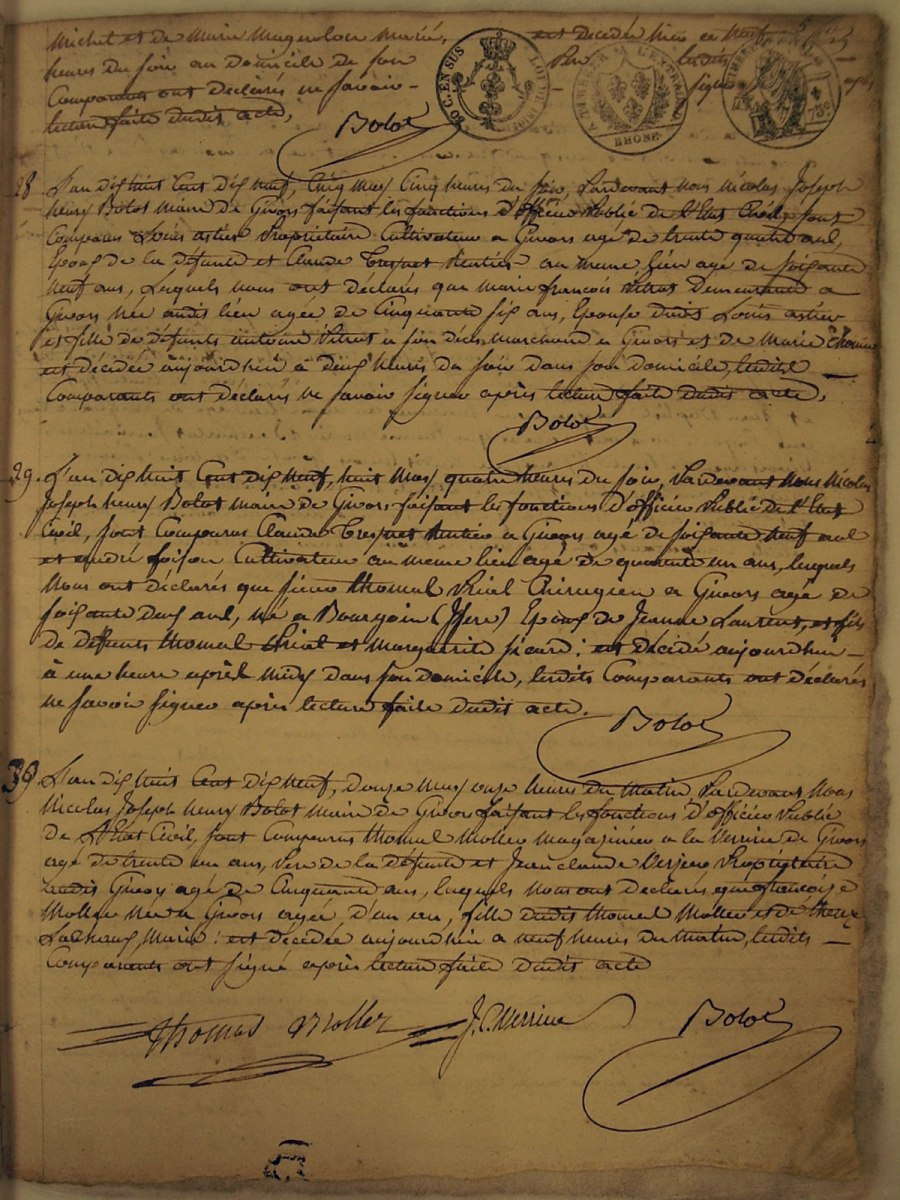 Michel et de Marie Magnolon Mariés, est decédée hier a neuf
heures du soir au domicile de son lesdits
Comparants ont déclarés ne savoir signer après
lecture faite dudit acte,
Bolot
20 C. EN SUS
RHONE
28 L'an dix huit Cent dix neuf, Cinq May Cinq heures du soir, Pardevant Nous Nicolas Joseph
henry Bolot Maire de Givors faisant les fonctions d'officier Public de l'Etat Civil, sont
Comparus Louis astier Propriétaire Cultivateur a Givors agé de trente quatre ans,
Epoux de la défunte et Claude Tresguet Rentier au meme lieu agé de soixante
neuf ans, Lesquels nous ont déclarés que Marie francois Vitrat Demeurante a
Givors née audit lieu agée de Cinquante six ans, Epouse dudit Louis astier
et fille de défunts antoine Vitrat a son décès Marchand a Givors et de Marie
est décédée aujourd'huy a deux heures du soir dans son domicile, lesdits
Comparants ont déclarés ne savoir signer après lecture faite dudit acte,
Bolot
29. L'an dix huit Cent dix neuf, huit May quatre heures du soir, Pardevant Nous Nicolas
Joseph henry Bolot Maire de Givors faisant les fonctions d'officier Public de l'Etat
Civil, sont Comparus Claude Tresguet Rentier a Givors agé de soixante neuf ans
et andré Loison Cultivateur au meme lieu agé de quarante un ans, lesquels
Nous ont déclarés que thomas Chirurgien a Givors agé de
soixante deux ans, né a Bourgoin (Isere) Epoux de Jeanne Laurent, et fils
de défunts thomas et Marguerite sicard; est décédé aujourd'huy
à une heure après Midy dans son domicile, lesdits Comparants ont déclarés
ne savoir signer après lecture faite dudit acte.
Bolot
30 L'an dix huit Cent dix neuf, douze May onze heures du Matin Pardevant Nous
Nicolas Joseph henry Bolot Maire de Givors faisant les fonctions d'officier Public
de l'Etat Civil, sont Comparus thomas Moller Magazinier a la Verrerie de Givors
agé de trente un ans, Père de la défunte et Jean claude Propriétaire
audit Givors agé de Cinquante ans, lesquels nous ont déclarés que françoise
Moller née a Givors agée d'un an, fille dudit thomas Moller et de
Marie: est décédée aujourd'huy a neuf heures du Matin, lesdits
Comparants ont signé après lecture faite dudit acte
Thomas Moller Bolot